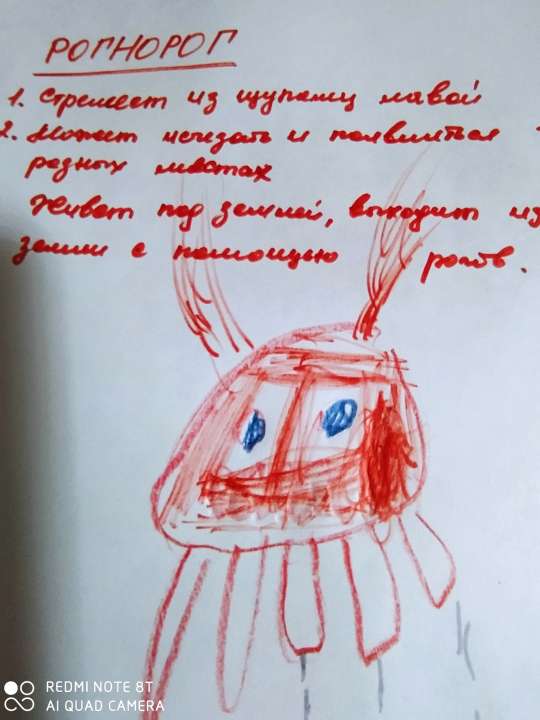 РОГНОРОГ
1. Стреляет из щупалец лавой
2. Может исчезать и появляться в
разных местах
Живёт под землёй, выходит из
земли с помощью рогов.
REDMI NOTE 8T
AI QUAD CAMERA